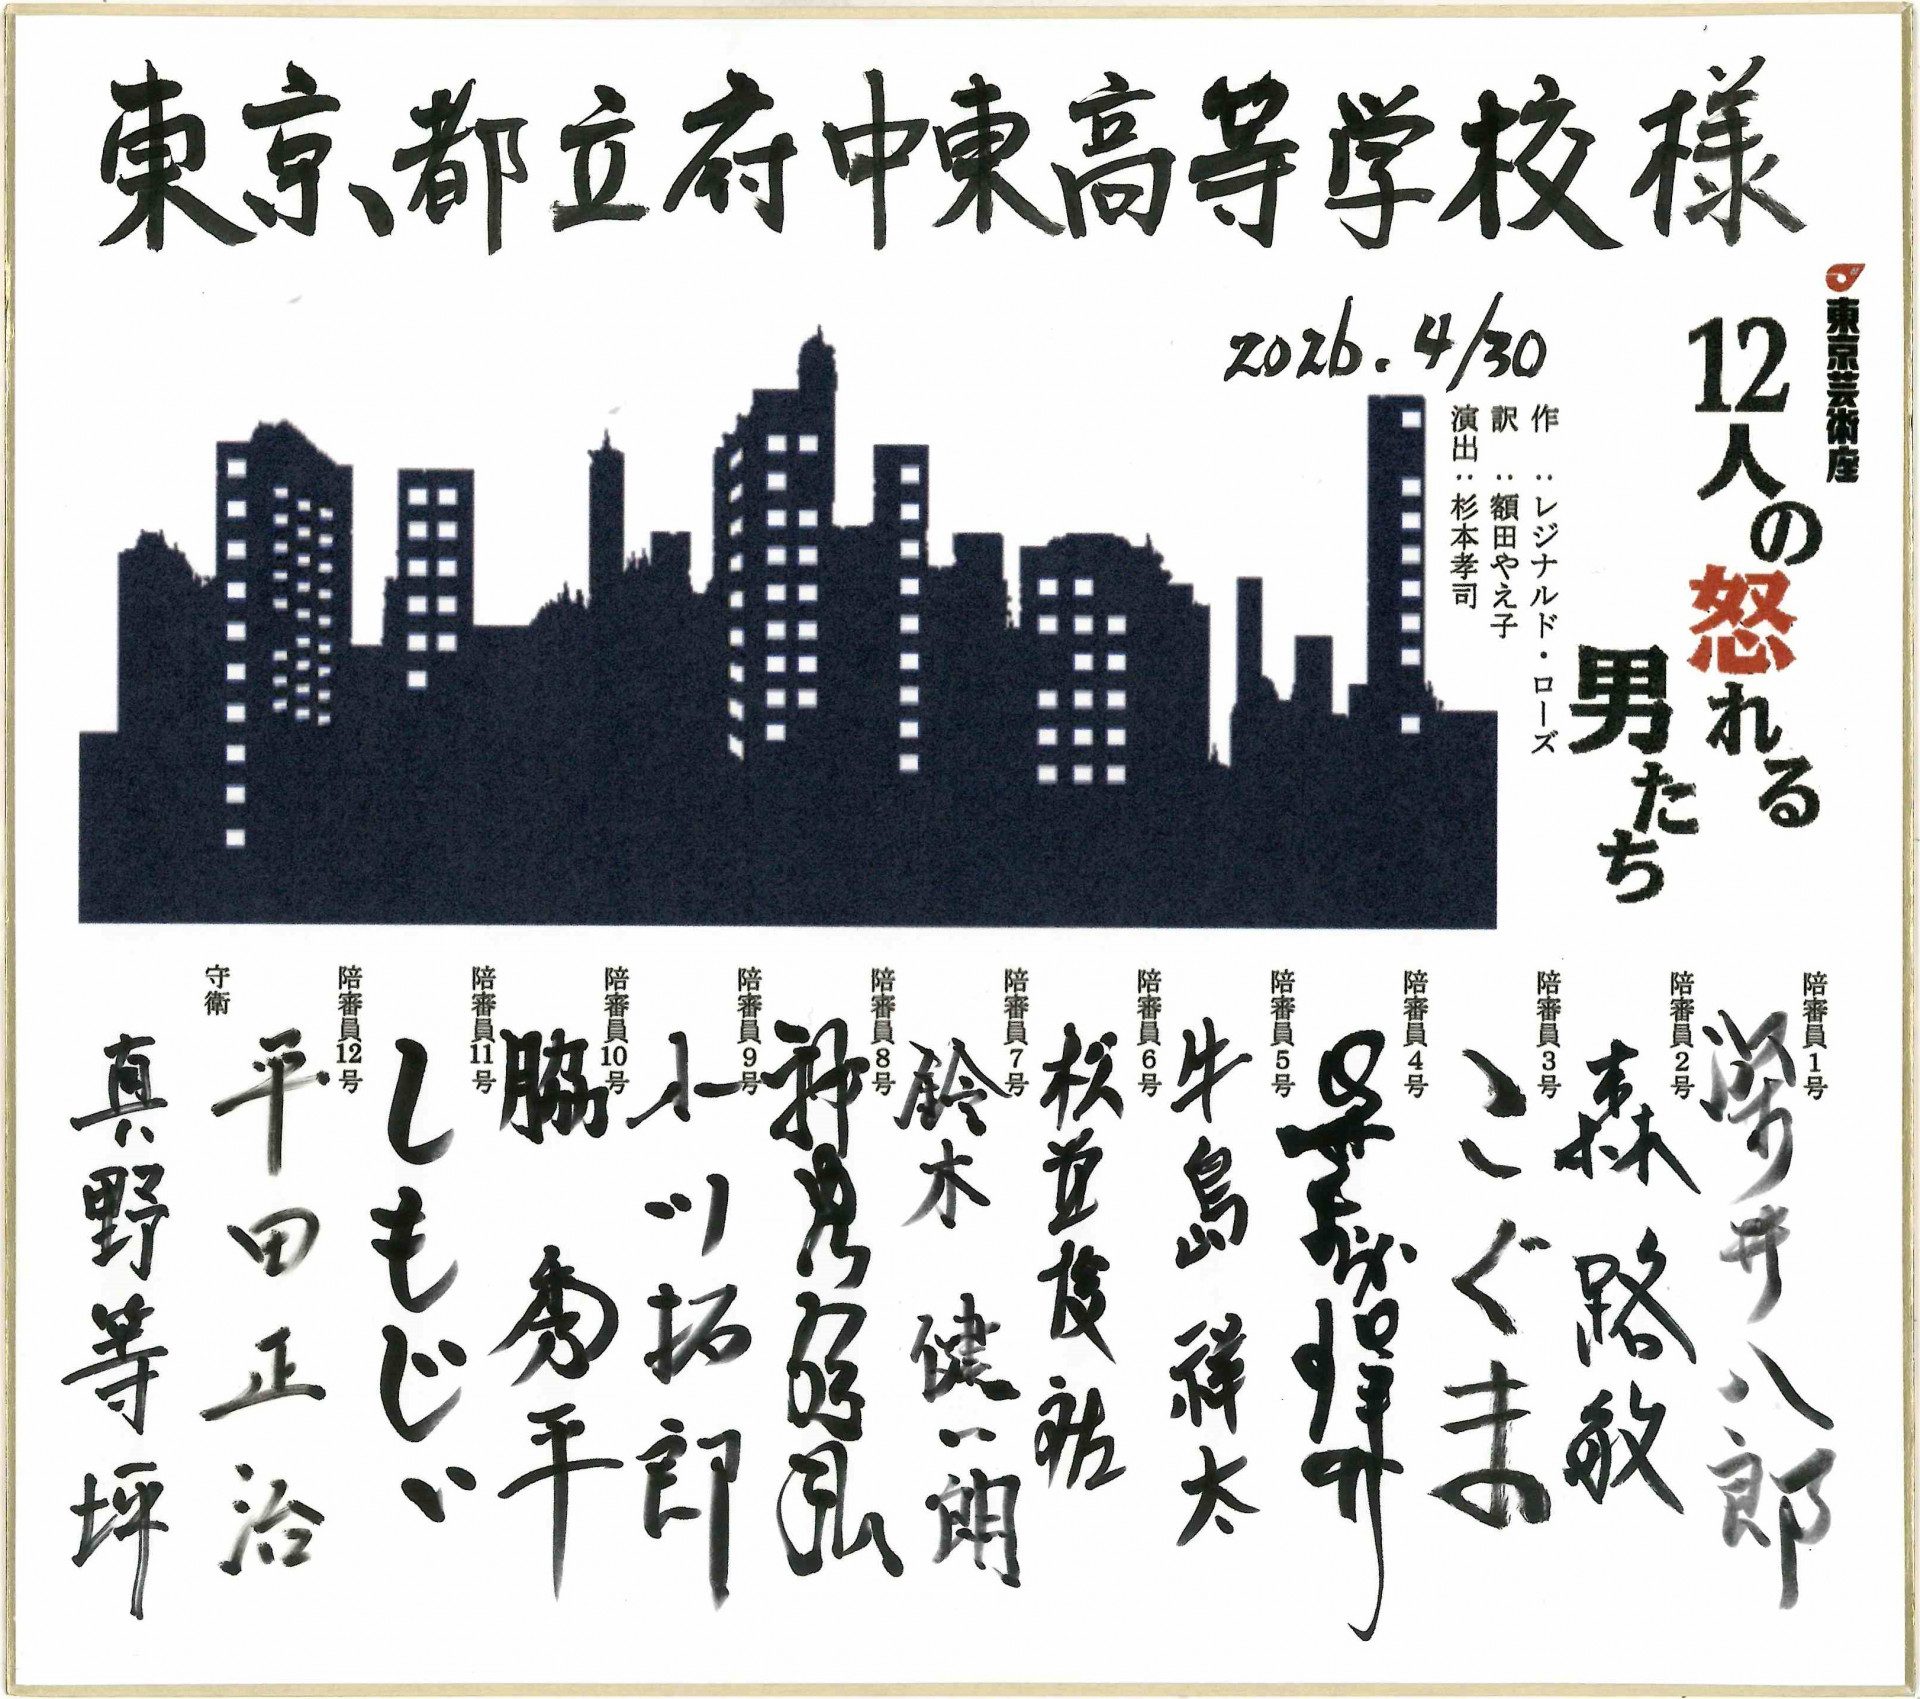 東京都立府中東高等学校様
東京芸術座
12人の怒れる男たち
2026.4/30
作：レジナルド・ローズ
訳：額田やえ子
演出：杉本孝司
陪審員1号
梁井八郎
陪審員2号
森路敏
陪審員3号
こぐま
陪審員4号
陪審員5号
牛島祥太
陪審員6号
松並俊祐
陪審員7号
鈴木健一朗
陪審員8号
陪審員9号
小川拓郎
陪審員10号
脇秀平
陪審員11号
しもじゞ
陪審員12号
平田正治
守衛
真野等坪